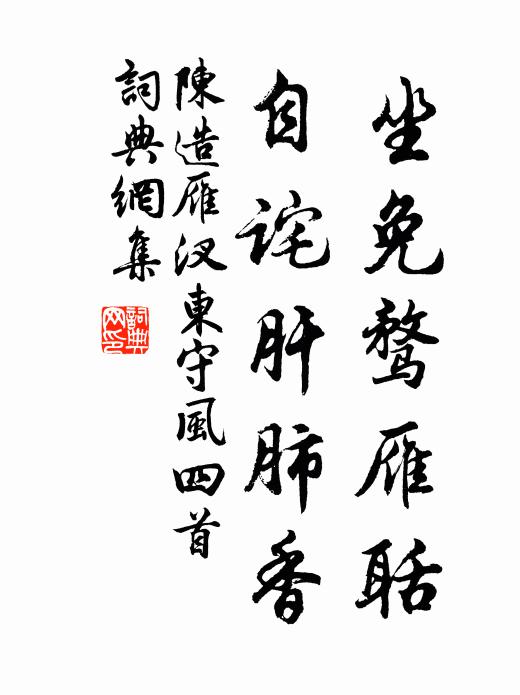 坐免鶩雁聒
自詫肝肺香
陳造雁汊東守風四首
詞典網集
詞典网印